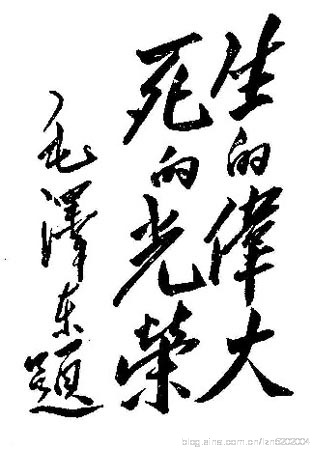 生的偉大
死的光榮
毛澤东題
blog.sina.com.cn/lsn6202004